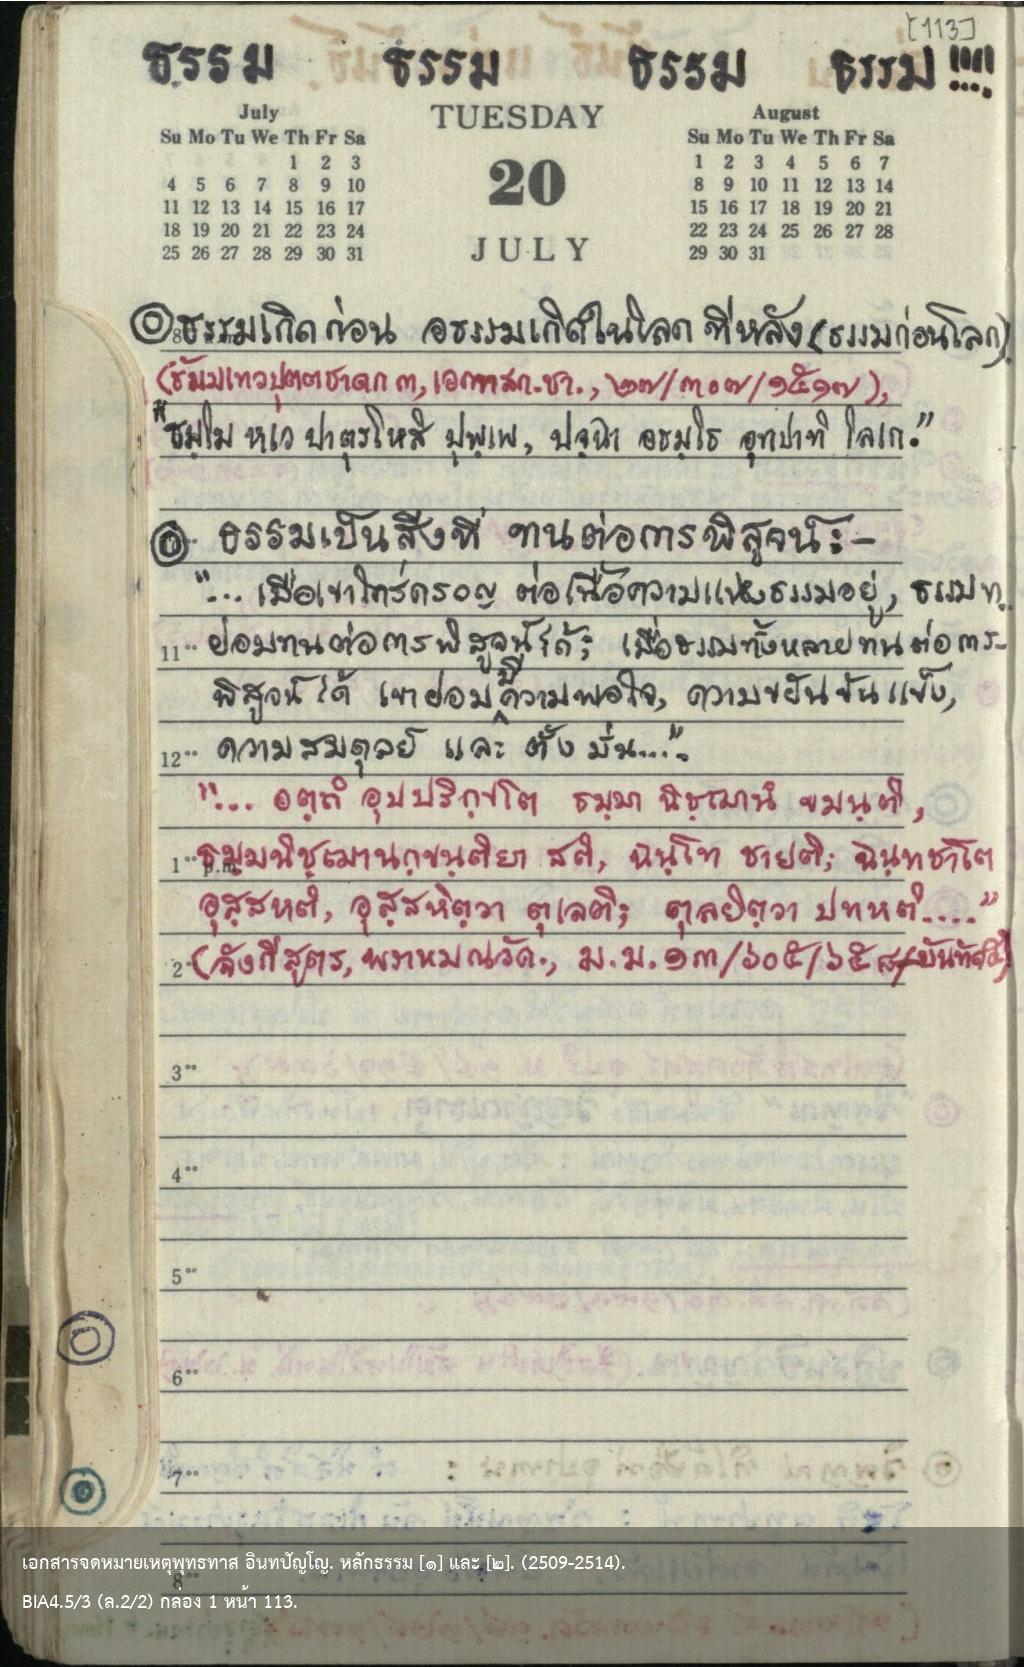 [113]
ธรรม ธรรม ธรรม ธรรม !!!!
July TUESDAY August
Su Mo Tu We Th Fr Sa
1 2 3
4 5 6 7 8 9 10
11 12 13 14 15 16 17
18 19 20 21 22 23 24
25 26 27 28 29 30 31
20
JULY
Su Mo Tu We Th Fr Sa
1 2 3 4 5 6 7
8 9 10 11 12 13 14
15 16 17 18 19 20 21
22 23 24 25 26 27 28
29 30 31
ธรรมเกิดก่อน อธรรมเกิดในโลก ทีหลัง (ธรรมก่อนโลก)
(ธัมมเทวปุตตชาดก ๓, เอกาทสก.ชา., ๒๗/๓๐๗/๑๕๑๗),
"ธมฺโม หเว ปาตุรโหสิ ปุพฺเพ, ปจฺฉา อธมฺโธ อุทปาทิ โลเก."
ธรรมเป็นสิ่งที่ ทนต่อการพิสูจน์:-
"... เมื่อเขาใคร่ครวญ ต่อเนื้อความแห่งธรรมอยู่, ธรรม ท.
11 ย่อมทนต่อการพิสูจน์ได้; เมื่อธรรมทั้งหลายทนต่อการ-
พิสูจน์ได้ เขาย่อมมีความพอใจ, ความขยันขันแข็ง,
12 ความสมดุลย์ และ ตั้งมั่น...".
"... อตฺถํ อุปปริกฺขโต ธมฺมา นิชฺฌานํ ขมนฺติ,
1 p.m. ธมฺมนิชฺฌานกฺขนฺติยา สติ, ฉนฺโท ชายติ; ฉนฺทชาโต
อุสฺสหติ, อุสฺสหิตฺวา ตุเลติ; ตุลยิตฺวา ปทหติ...."
2 (จังกีสูตร, พราหมณวัค., ม.ม. ๑๓/๖๐๕/๖๕๘/บันทัด๕)
3
4
5
6
7
8
เอกสารจดหมายเหตุพุทธทาส อินทปัญโญ. หลักธรรม [๑] และ [๒]. (2509-2514).
BIA4.5/3 (ล.2/2) กล่อง 1 หน้า 113.